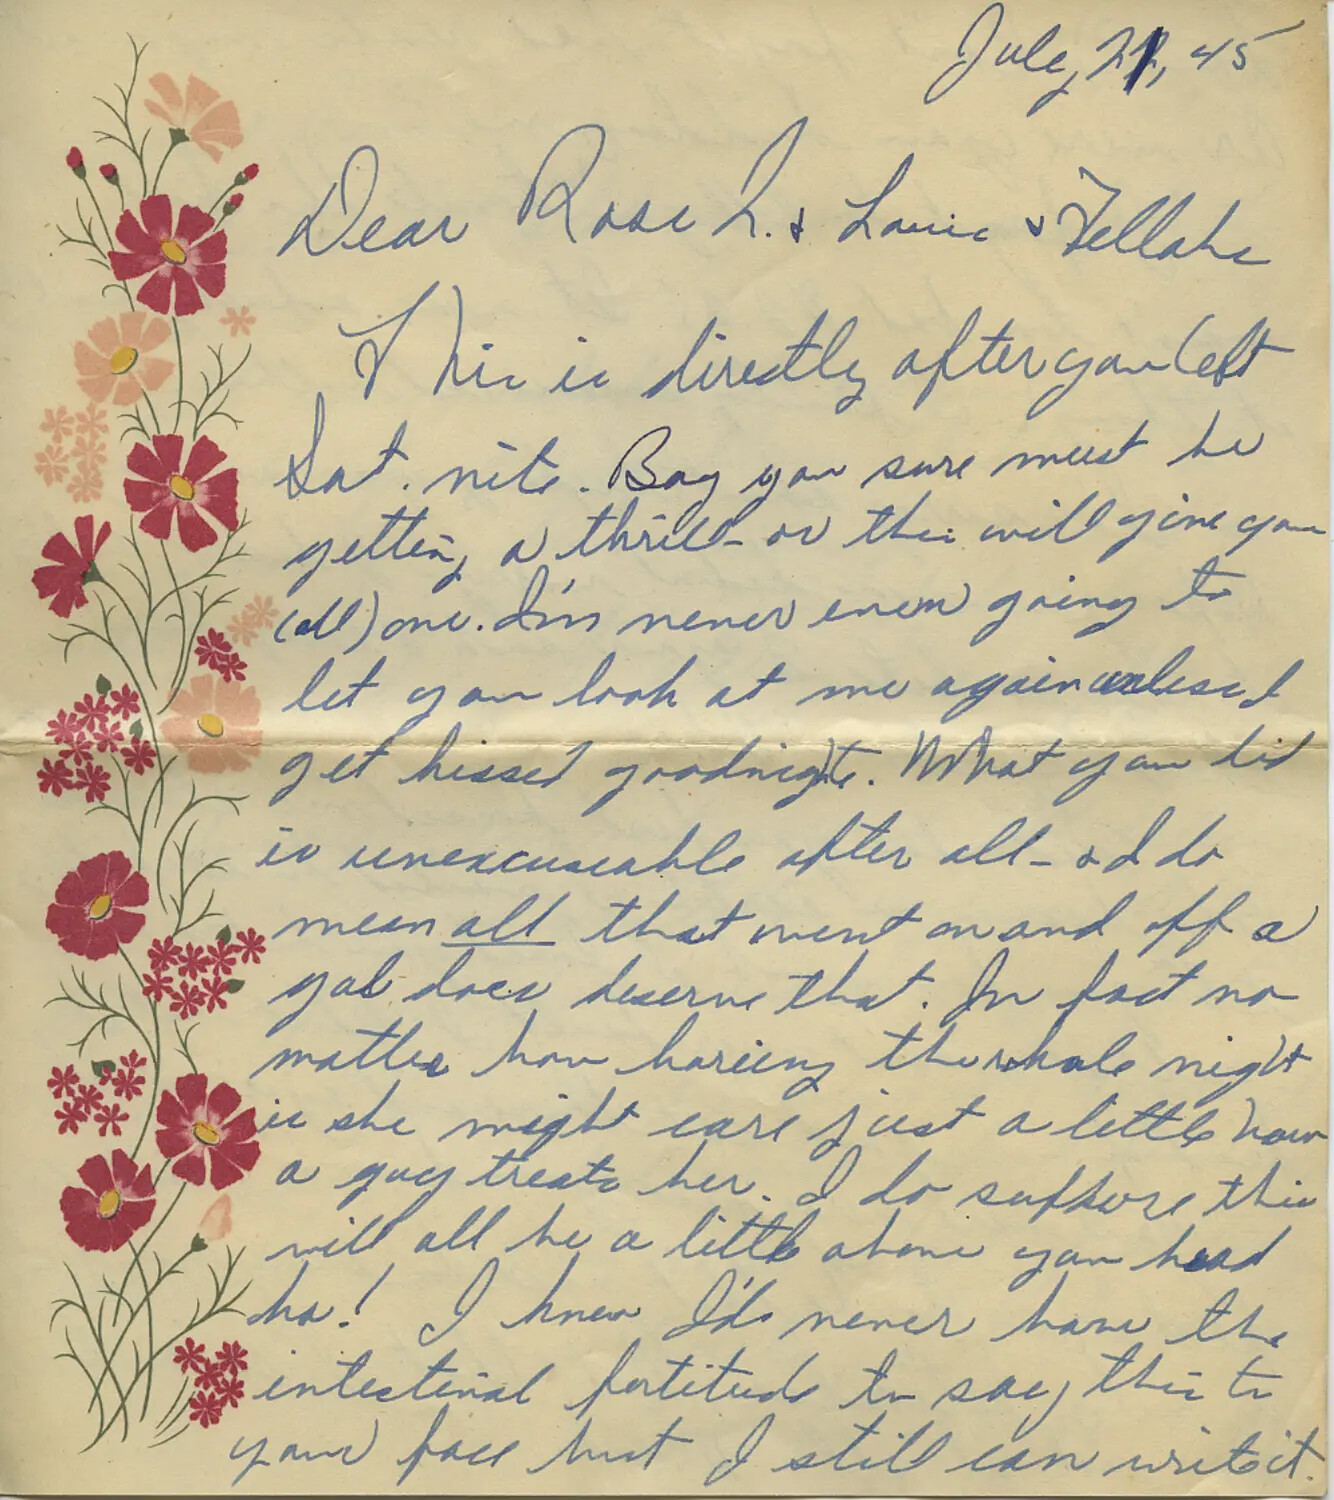 July 21, 45
Dear Rose L. & Louie & Fellahs
This is directly after you left
Sat. nite. Boy you sure must be
getting a thrill - or this will give you
(all) one. I'm never even going to
let you look at me again unless I
get kissed goodnight. What you did
is unexcuseable after all - & I do
mean all that went on and off a
gal does deserve that. In fact no
matter how boring the whole night
is she might care just a little how
a guy treats her. I do suppose this
will all be a little above your head
ha! I knew I'd never have the
intestinal fortitude to say this to
your face but I still can write it.